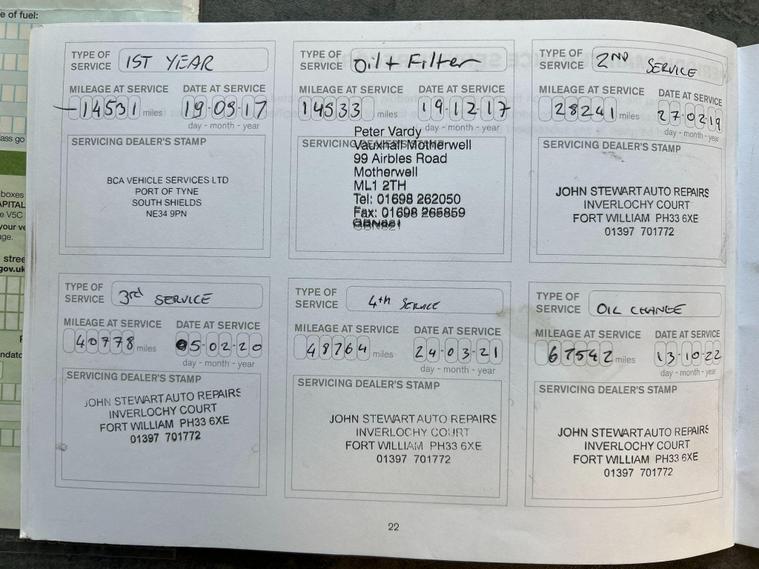 e of fuel:
ass go
boxes
APITAL
e V5C
our ve
nge.
stree
gov.uk
ndato
TYPE OF SERVICE 1ST YEAR
MILEAGE AT SERVICE DATE AT SERVICE
14531 miles 19-09-17
day - month - year
SERVICING DEALER'S STAMP
BCA VEHICLE SERVICES LTD
PORT OF TYNE
SOUTH SHIELDS
NE34 9PN
TYPE OF SERVICE Oil + Filter
MILEAGE AT SERVICE DATE AT SERVICE
14533 miles 19-12-17
day - month - year
SERVICING DEALER'S STAMP
Peter Vardy
Vauxhall Motherwell
99 Airbles Road
Motherwell
ML1 2TH
Tel: 01698 262050
Fax: 01698 265859
TYPE OF SERVICE 2ND SERVICE
MILEAGE AT SERVICE DATE AT SERVICE
28241 miles 27-02-19
day - month - year
SERVICING DEALER'S STAMP
JOHN STEWART AUTO REPAIRS
INVERLOCHY COURT
FORT WILLIAM PH33 6XE
01397 701772
TYPE OF SERVICE 3rd SERVICE
MILEAGE AT SERVICE DATE AT SERVICE
40778 miles 05-02-20
day - month - year
SERVICING DEALER'S STAMP
JOHN STEWART AUTO REPAIRS
INVERLOCHY COURT
FORT WILLIAM PH33 6XE
01397 701772
TYPE OF SERVICE 4th SERVICE
MILEAGE AT SERVICE DATE AT SERVICE
48764 miles 24-03-21
day - month - year
SERVICING DEALER'S STAMP
JOHN STEWART AUTO REPAIRS
INVERLOCHY COURT
FORT WILLIAM PH33 6XE
01397 701772
TYPE OF SERVICE OIL CHANGE
MILEAGE AT SERVICE DATE AT SERVICE
67542 miles 13-10-22
day - month - year
SERVICING DEALER'S STAMP
JOHN STEWART AUTO REPAIRS
INVERLOCHY COURT
FORT WILLIAM PH33 6XE
01397 701772
22